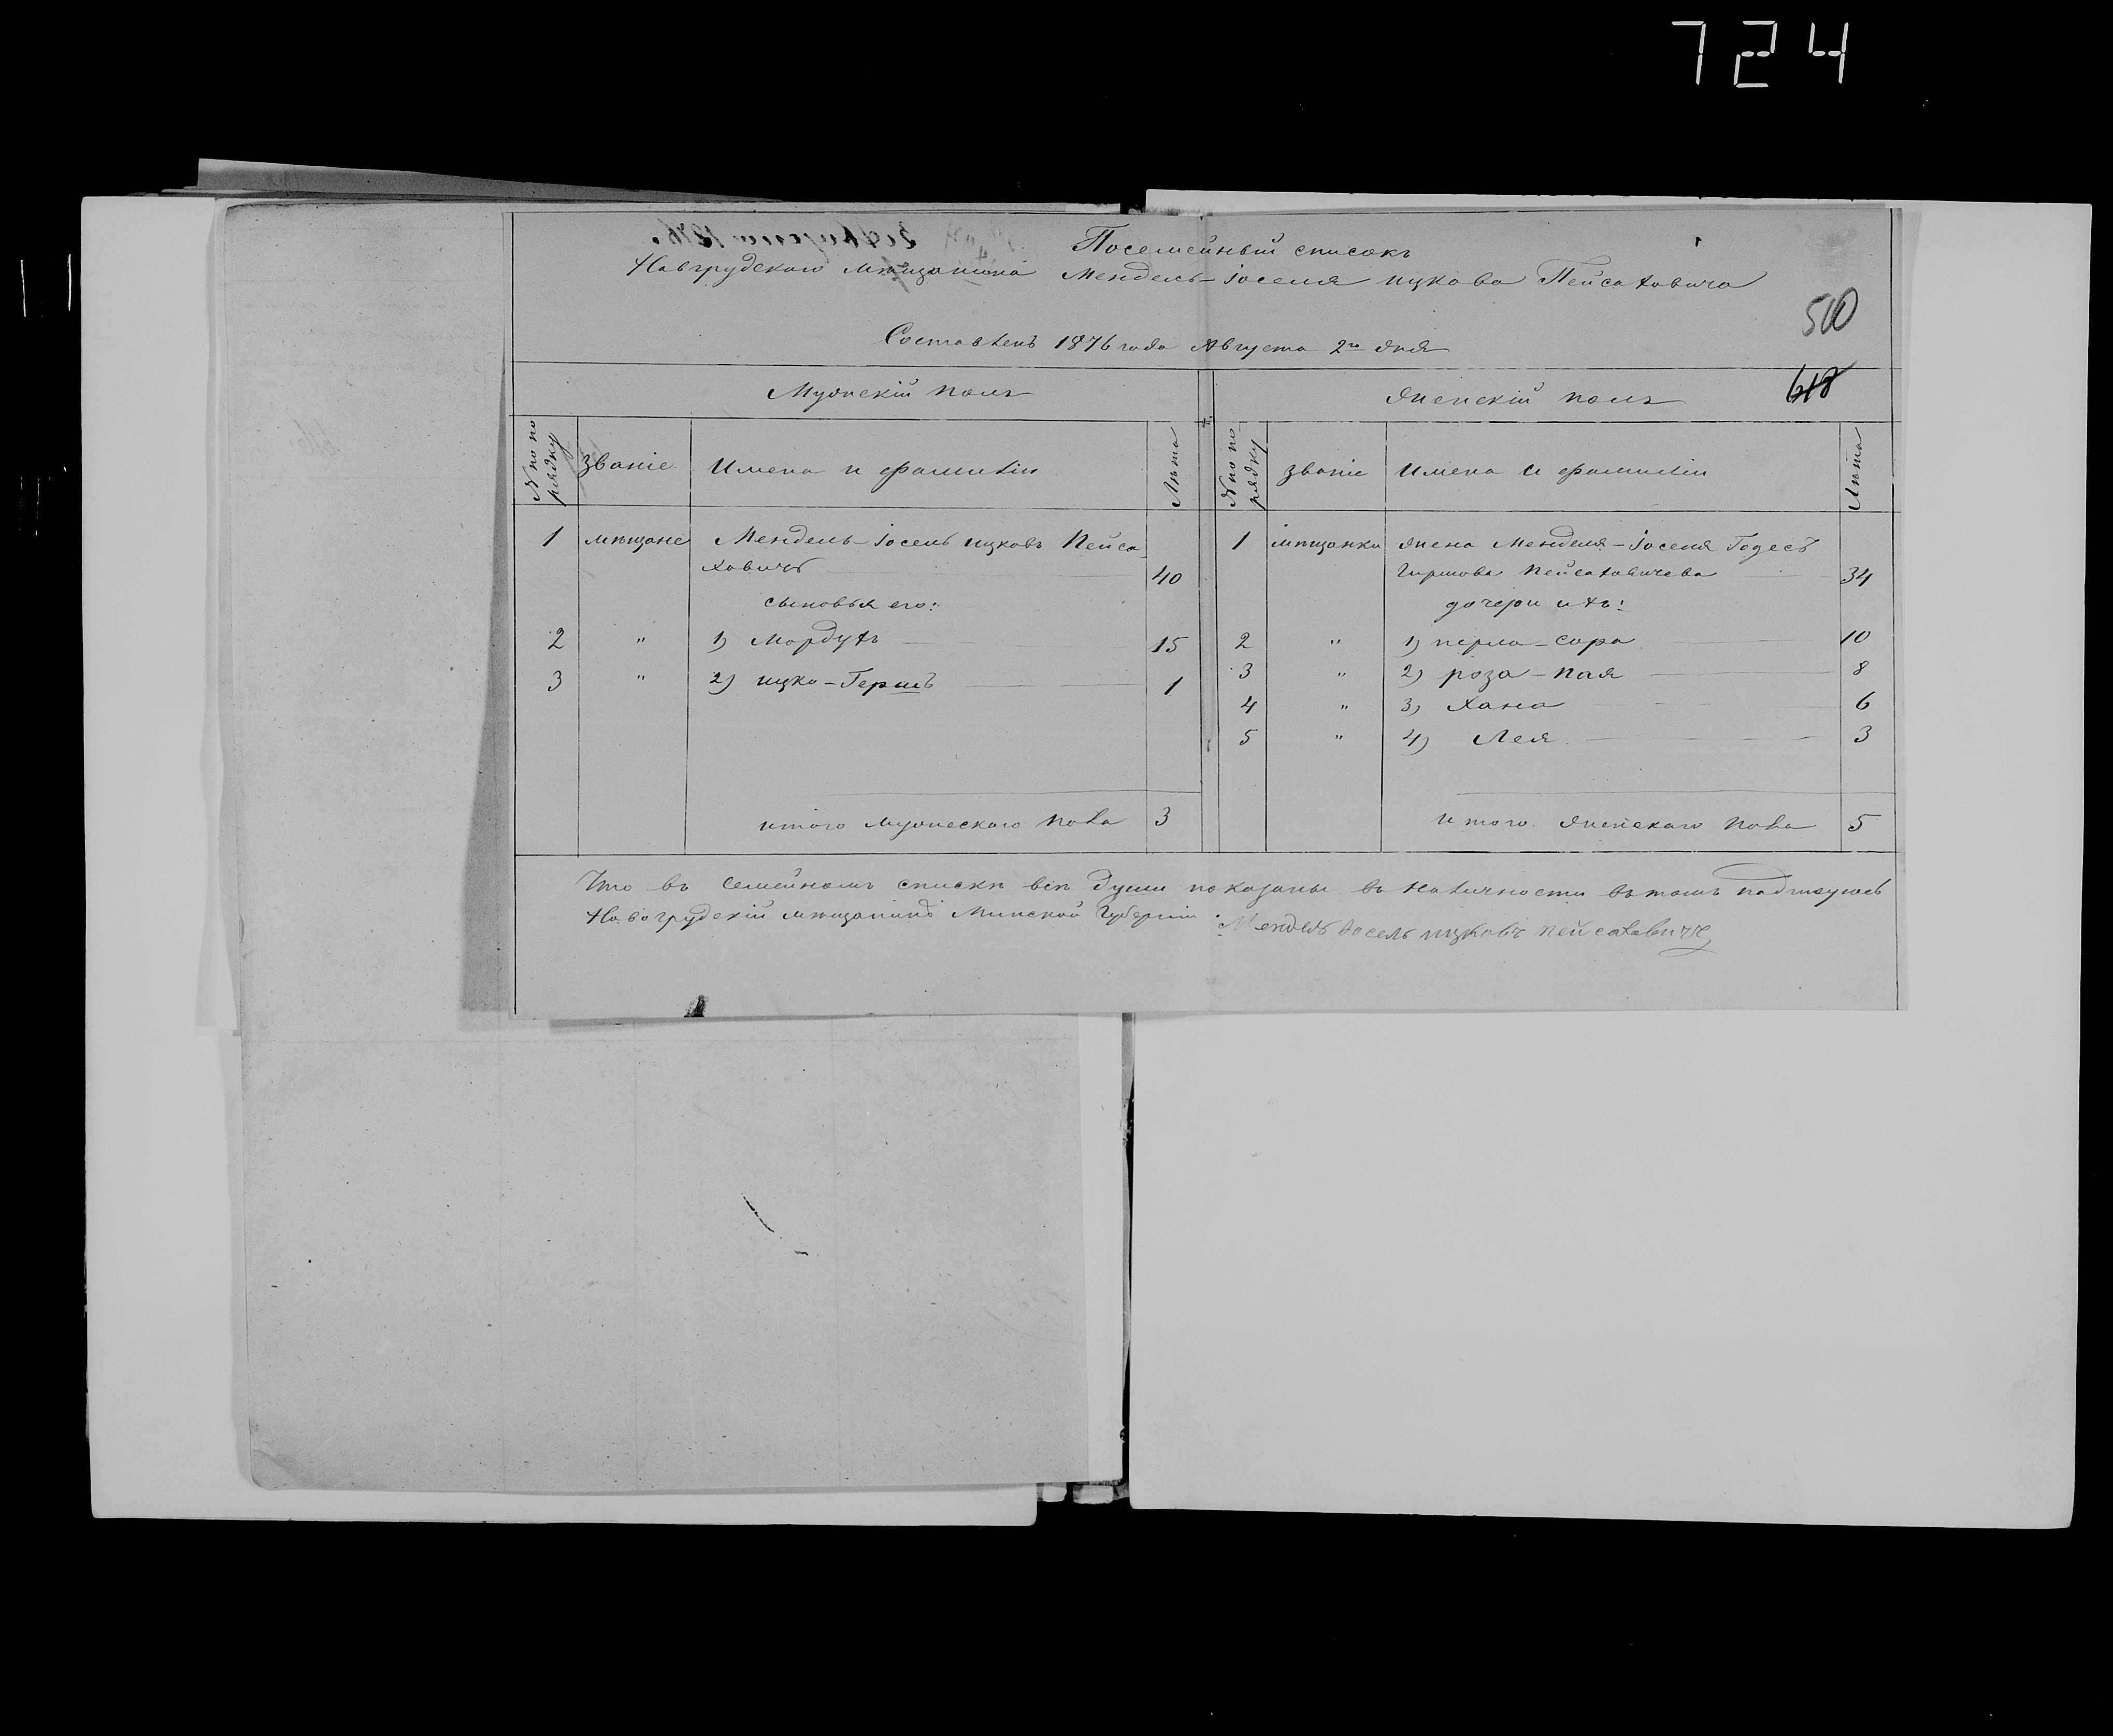 724
Посемейный списокъ
Новгрудскаго мѣщанина Мендель-Іоселя Ицкова Пейсаховича
500
Составленъ 1876 года Августа 2го дня
618
Мужскій полъ
Женскій полъ
№ по порядку Званіе Имена и фамиліи Лѣта № по порядку Званіе Имена и фамиліи Лѣта
1 мѣщане Мендель-Іосель Ицковъ Пейса 1 мѣщанки жена Менделя-Іоселя Годесъ
ховичъ 40 Гиршова Пейсаховичева 34
сыновья его: дочери ихъ:
2 " 1) Мордухъ 15 2 " 1) перла-сора 10
3 " 2) ицко-Гершъ 1 3 " 2) роза-пая 8
4 " 3) Хана 6
5 " 4) Лея 3
итого мужескаго пола 3 итого женскаго пола 5
Что въ семейномъ списки всѣ души показаны въ наличности въ томъ подписуюсь
Новогрудскій мѣщанинъ Минской Губерніи Мендель Іосель ицковъ пейсаховичъ